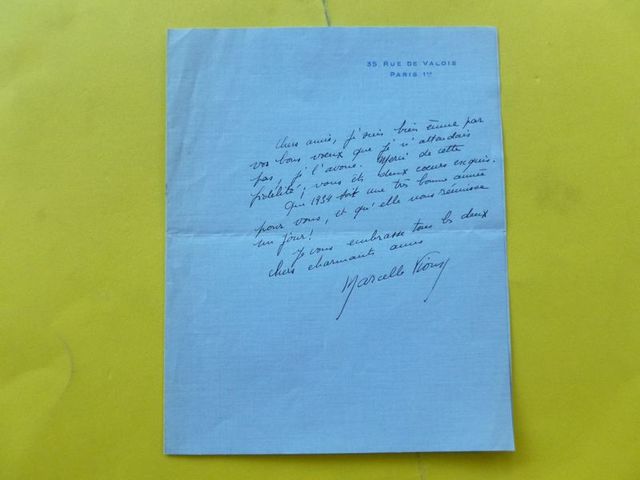 35 RUE DE VALOIS
PARIS 1er
Chers amis, je suis bien émue par
vos bons vœux que je n'attendais
pas, je l'avoue. Merci de cette
fidélité, vous êtes deux cœurs exquis.
Que 1934 soit une très bonne année
pour vous, et qu'elle nous réunisse
un jour!
Je vous embrasse tous les deux
chers charmants amis
Marcelle Vioux